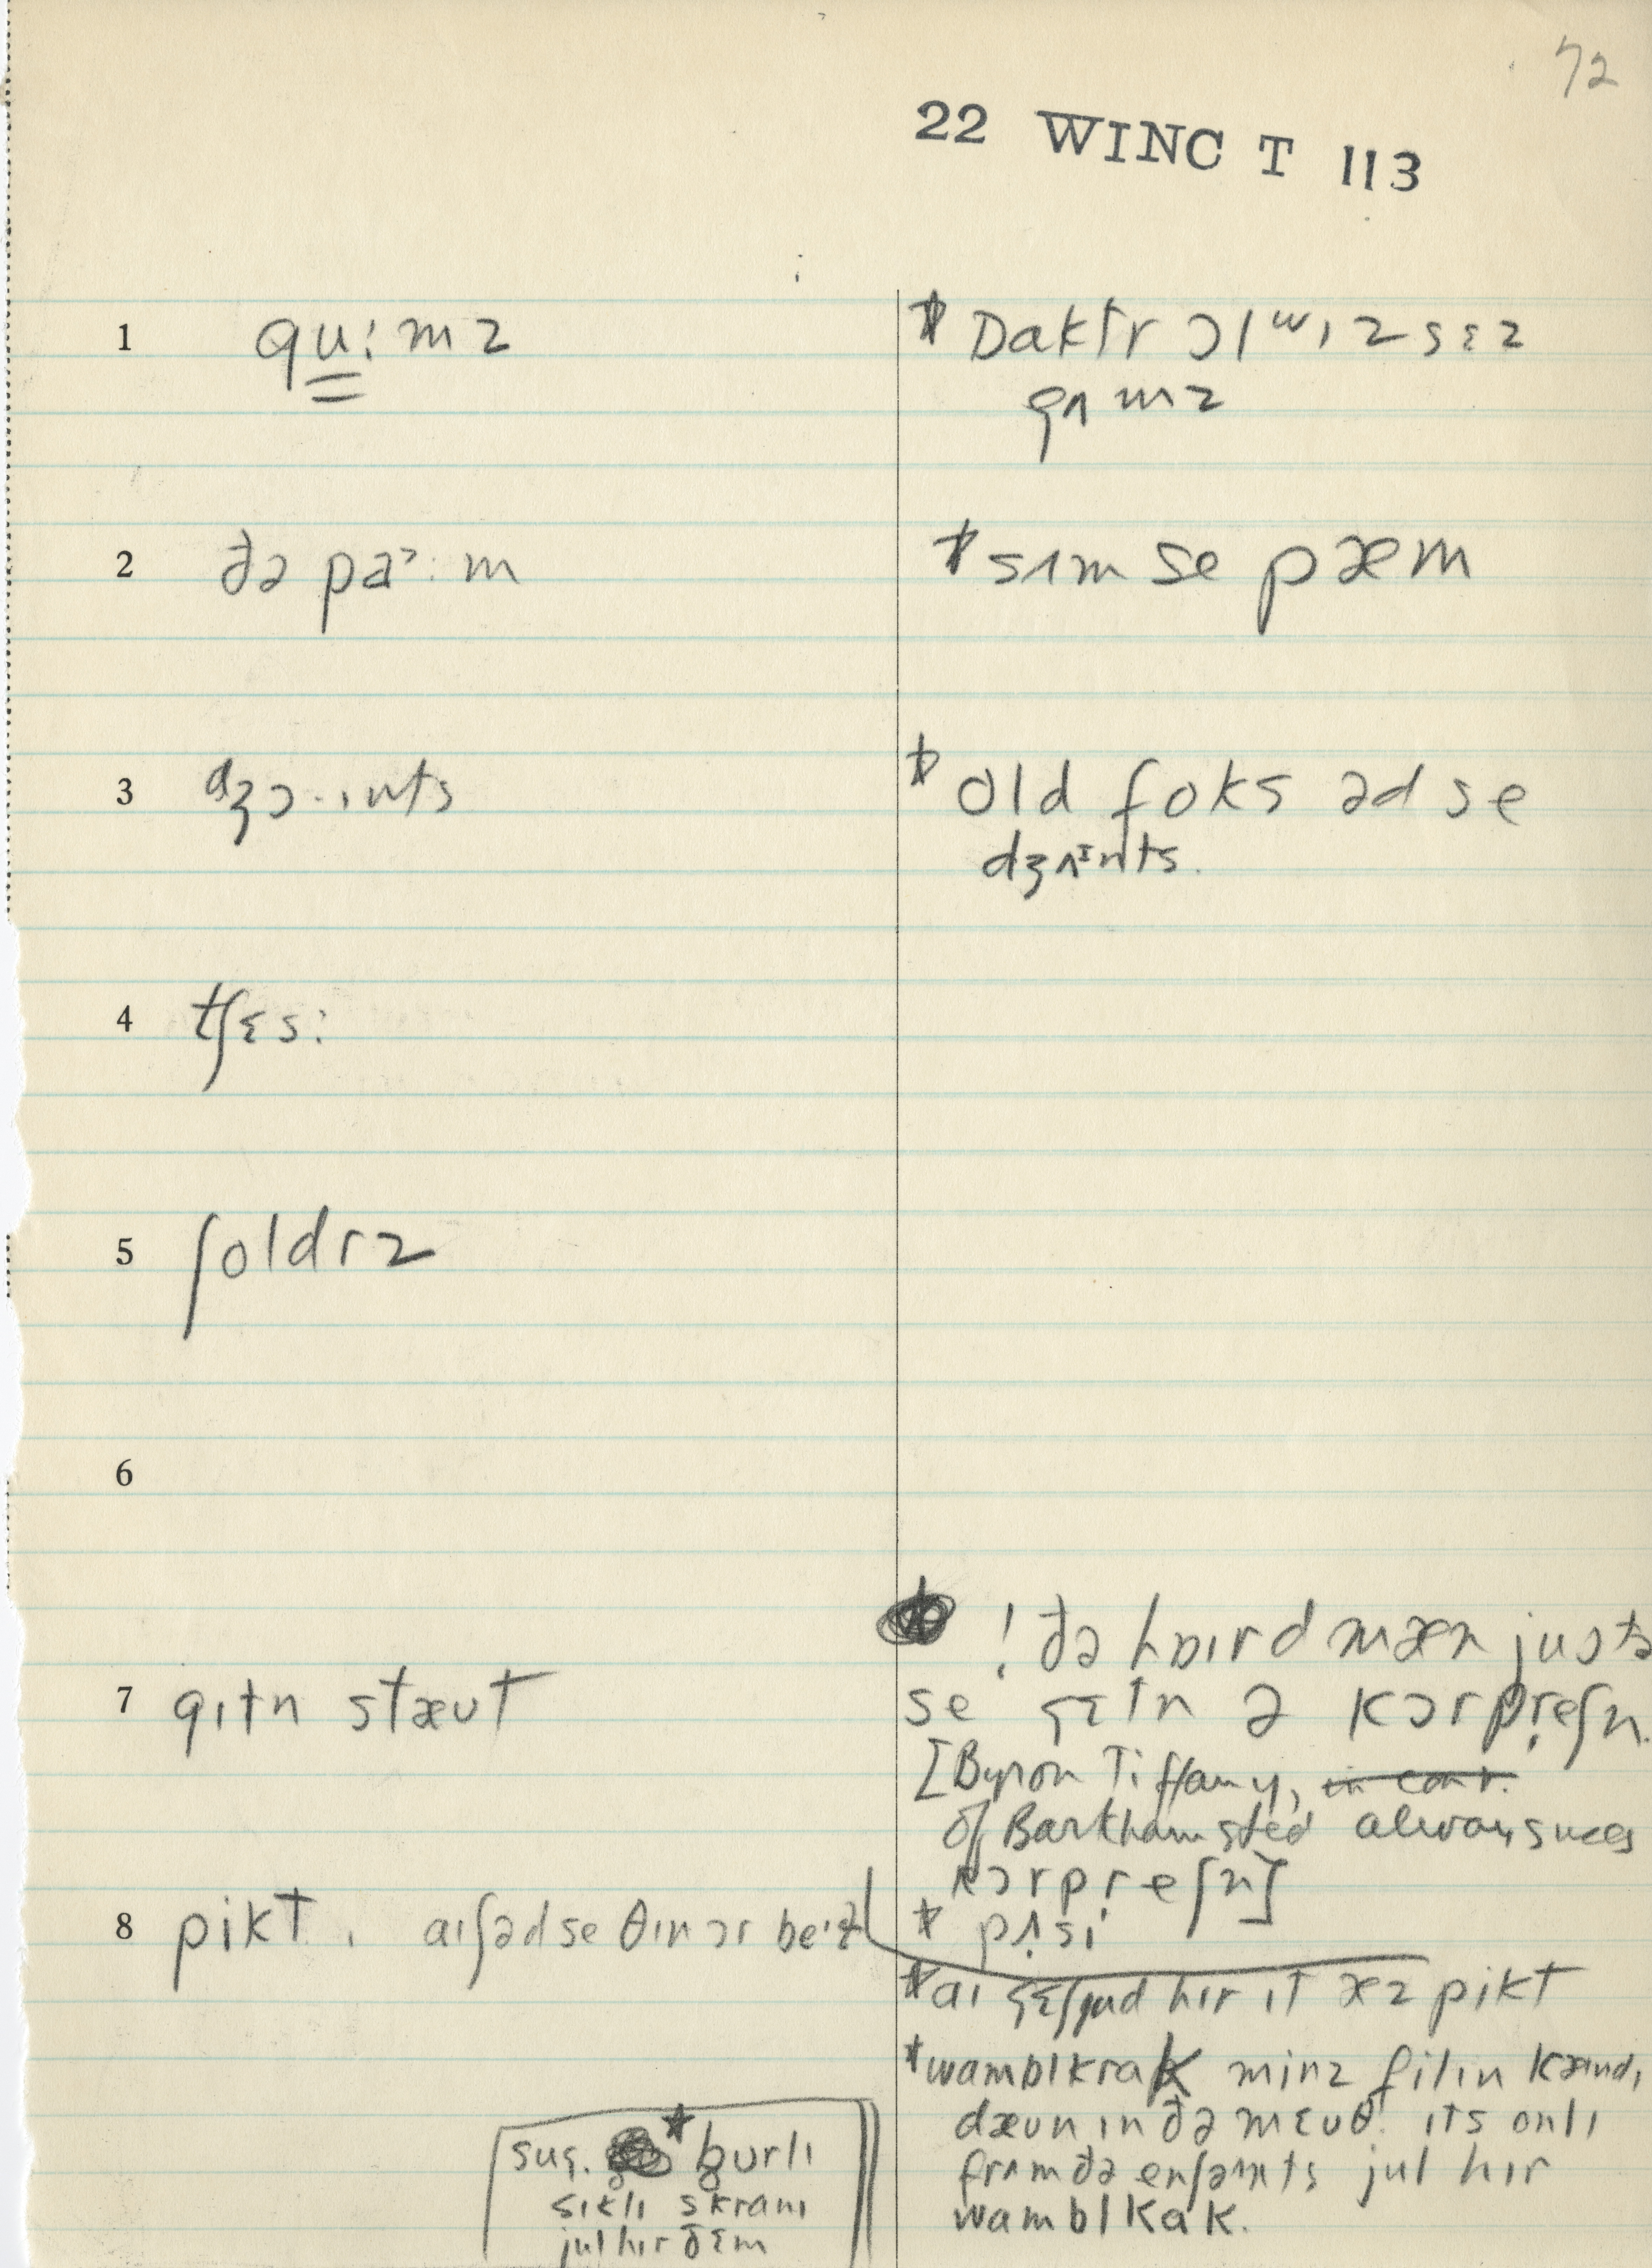 72
22 WINC T 113
1 gu:mz
* Daktr ɔlʷɪz sɛz
gʌmz
2 ðə paˀ:m
* sʌm se pæm
3 dʒɔ·ɪnts
* old foks əd se
dʒʌᶦnts.
4 tʃɛs:
5 ʃoldrz
6
! ðə hɒɪrd mæn justə
7 gɪtn stæʊt
se gɛtn ə kɔrpreʃn.
[Byron Tiffany, in cont.
of Barkhamsted always uses
kɔrpreʃn]
8 pikt. aɪ ʃəd se θɪn ɔr
* pʌsi
* aɪ hɪr ɪt æz pikt
* wamblkrak minz filɪn kæɪndə
dæʊn ɪn ðə mɛʊθ. ɪts onlɪ
frʌm ðə enʃənts jul hɪr
wamblkak.
sug. * burlɪ
sɪklɪ skranɪ
jul hɪr ðɛm